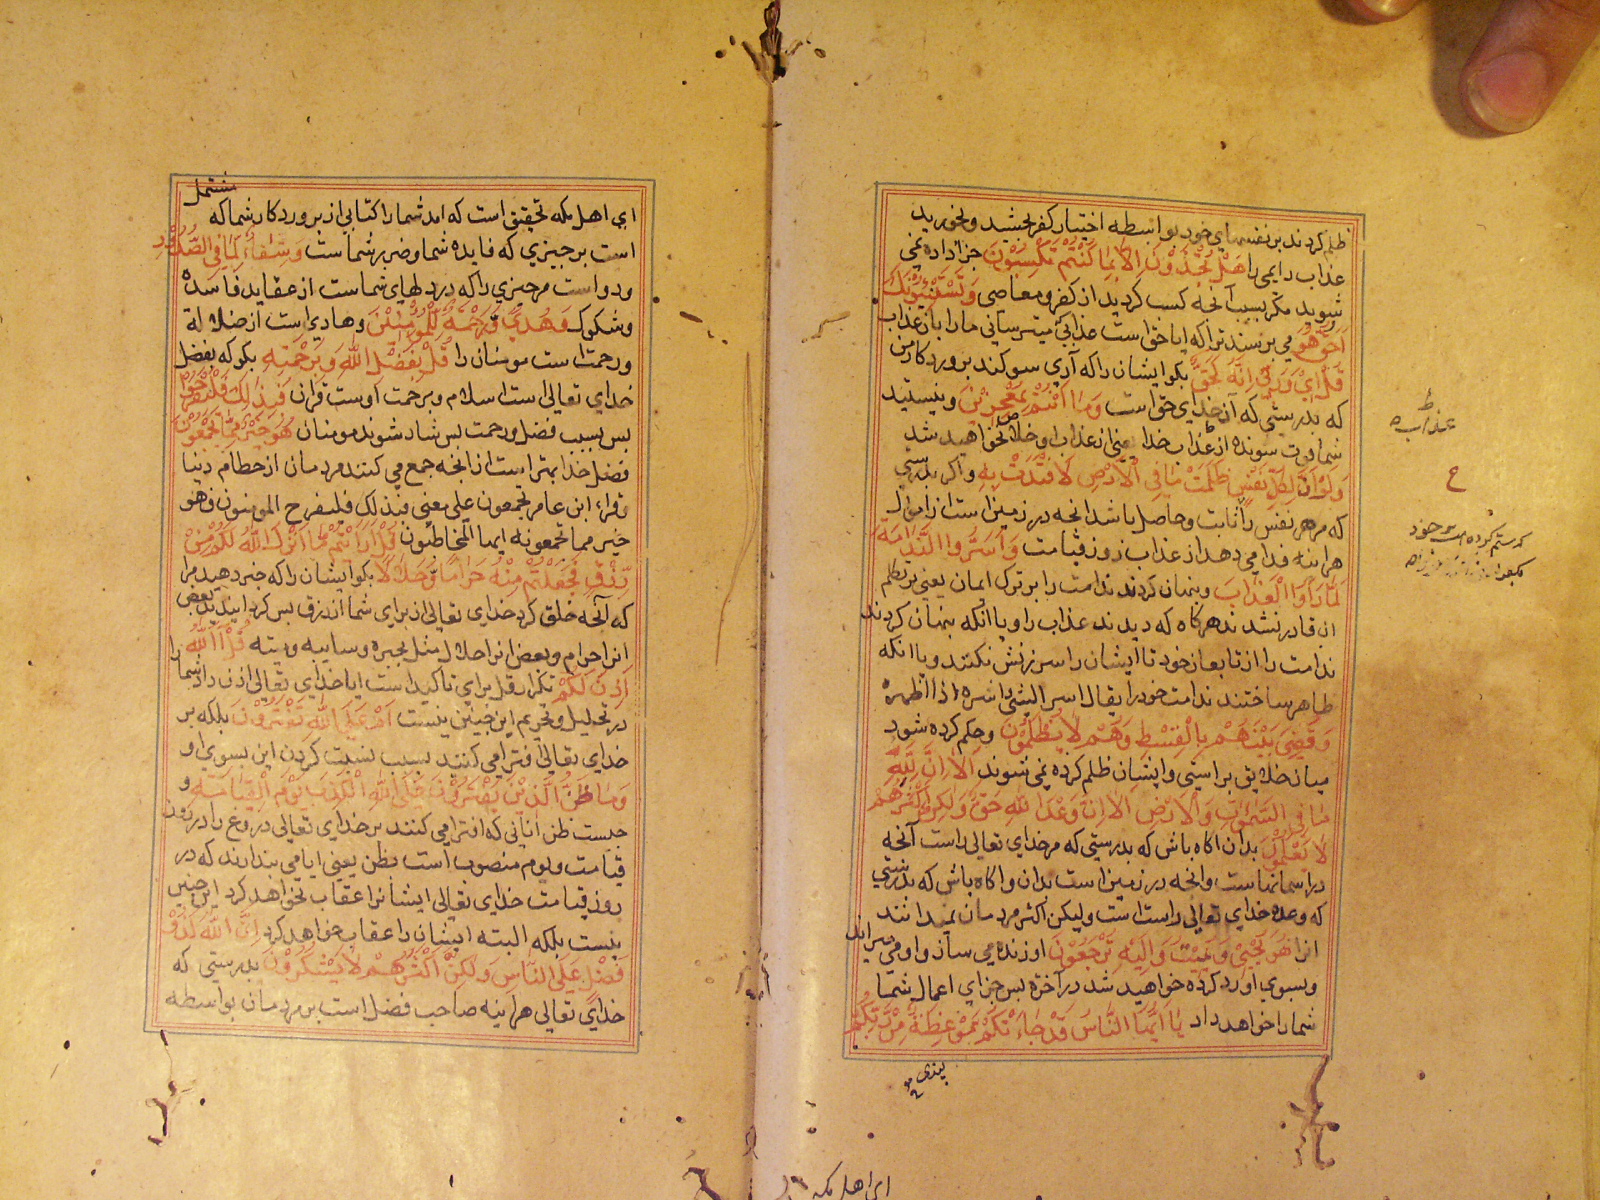 ظلم کردند بر نفسهاي خود بواسطه اختيار کفر بچشيد و بخوريد
عذاب دايمي را هَلْ تُجْزَوْنَ اِلَّا بِمَا كُنْتُمْ تَكْسِبُوْنَ جزا داده نمي
شويد مکر بسبب آنچه کسب کرديد از کفر و معاصي وَيَسْتَنْبِئُوْنَكَ
اَحَقٌّ هُوَ مي پرسند ترا که ايا حق است عذابي که ميترساني ما را باز عذاب
قُلْ اِيْ وَرَبِّيْ اِنَّهُ لَحَقٌّ بکو ايشان را که آري سوکند بپروردکار من
که بدرستي که آن خداي حق است وَمَا اَنْتُمْ بِمُعْجِزِيْنَ و نيستيد
شما فوت شونده از عذاب خدا يعني از عذاب او خلاص نخواهيد شد
وَلَوْ اَنَّ لِكُلِّ نَفْسٍ ظَلَمَتْ مَا فِي الْاَرْضِ لَافْتَدَتْ بِهِ و اکر بدرستي
که مر هر نفس را ثابت و حاصل باشد انچه در زمين است از اموال
هر اينه فدا مي دهد از عذاب روز قيامت وَاَسَرُّوا النَّدَامَةَ
لَمَّا رَاَوُا الْعَذَابَ و پنهان کردند ندامت را بر ترک ايمان يعني بر تکلم
ان قادر نشدند هرکاه که ديدند عذاب را و يا انکه پنهان کردند
ندامت را از تابعان خود تا ايشان را سرزنش نکنند و يا انکه
ظاهر ساختند ندامت خود را يقال اسر الشي اشره اذا اظهره
وَقُضِيَ بَيْنَهُمْ بِالْقِسْطِ وَهُمْ لَا يُظْلَمُوْنَ و حکم کرده شود
ميان خلايق براستي و ايشان ظلم کرده نمي شوند اَلَا اِنَّ لِلّٰهِ
مَا فِي السَّمٰوٰتِ وَالْاَرْضِ اَلَا اِنَّ وَعْدَ اللّٰهِ حَقٌّ وَّلٰكِنَّ اَكْثَرَهُمْ
لَا يَعْلَمُوْنَ بدان اکاه باش که بدرستي که مر خداي تعالي راست آنچه
در اسمانهاست و انچه در زمين است بدان و اکاه باش که بدرستي
که وعده خداي تعالي راست است وليکن اکثر مردمان نميدانند
انرا هُوَ يُحْيِيْ وَيُمِيْتُ وَاِلَيْهِ تُرْجَعُوْنَ او زنده مي سازد و او مي ميراند
و بسوي او رد کرده خواهيد شد در آخرة پس جزاي اعمال شما
شما را خواهد داد يَا اَيُّهَا النَّاسُ قَدْ جَاءَتْكُمْ مَوْعِظَةٌ مِنْ رَبِّكُمْ
پندي
عذاب
ع
که ستم کرده است بر خود
اي اهل مکه
مشتمل
اي اهل مکه تحقيق است که امد شما را کتابي از پروردکار شما که
است بر چيزي که فايده شما و ضرر شماست وَشِفَاءٌ لِمَا فِي الصُّدُوْرِ
و دواست مر چيزي را که در دلهاي شماست از عقايد فاسده
و شکوک وَهُدًي وَّرَحْمَةٌ لِّلْمُؤْمِنِيْنَ و هادي است از ضلالة
و رحمت است مومنان را قُلْ بِفَضْلِ اللّٰهِ وَبِرَحْمَتِهِ بکو که بفضل
خداي تعالي است اسلام و برحمت اوست قران فَبِذٰلِكَ فَلْيَفْرَحُوْا
پس بسبب فضل و رحمت پس شاد شوند مومنان هُوَ خَيْرٌ مِّمَّا يَجْمَعُوْنَ
فضل خدا بهتر است از انچه جمع مي کنند مردمان از حطام دنيا
و قراء ابن عامر تجمعون علي معني فبذلک فليفرح المومنون فهو
خير مما تجمعونه ايها المخاطبون قُلْ اَرَاَيْتُمْ مَا اَنْزَلَ اللّٰهُ لَكُمْ مِنْ
رِّزْقٍ فَجَعَلْتُمْ مِنْهُ حَرَامًا وَّحَلَالًا بکو ايشان را که خبر دهيد مرا
که آنچه خلق کرد خداي تعالي از براي شما از رزق پس کردانيديد بعض
انرا حرام و بعض انرا حلال مثل بحيره و سايبه و ميته قُلْ آللّٰهُ
اَذِنَ لَكُمْ تکرار قل براي تاکيد است ايا خداي تعالي اذن داد شما را
در تحليل و تحريم اين چنين نيست اَمْ عَلَي اللّٰهِ تَفْتَرُوْنَ بلکه بر
خداي تعالي افترا مي کنند بسبب نسبت کردن اين بسوي او
وَمَا ظَنُّ الَّذِيْنَ يَفْتَرُوْنَ عَلَي اللّٰهِ الْكَذِبَ يَوْمَ الْقِيَامَةِ و
چيست ظن اناني که افترا مي کنند بر خداي تعالي دروغ را در روز
قيامت و يوم منصوب است بظن يعني ايا مي پندارند که در
روز قيامت خداي تعالي ايشانرا عقاب نخواهد کرد اين چنين
نيست بلکه البته ايشان را عقاب خواهد کرد اِنَّ اللّٰهَ لَذُوْ
فَضْلٍ عَلَي النَّاسِ وَلٰكِنَّ اَكْثَرَهُمْ لَا يَشْكُرُوْنَ بدرستي که
خداي تعالي هر اينه صاحب فضل است بر مردمان بواسطه